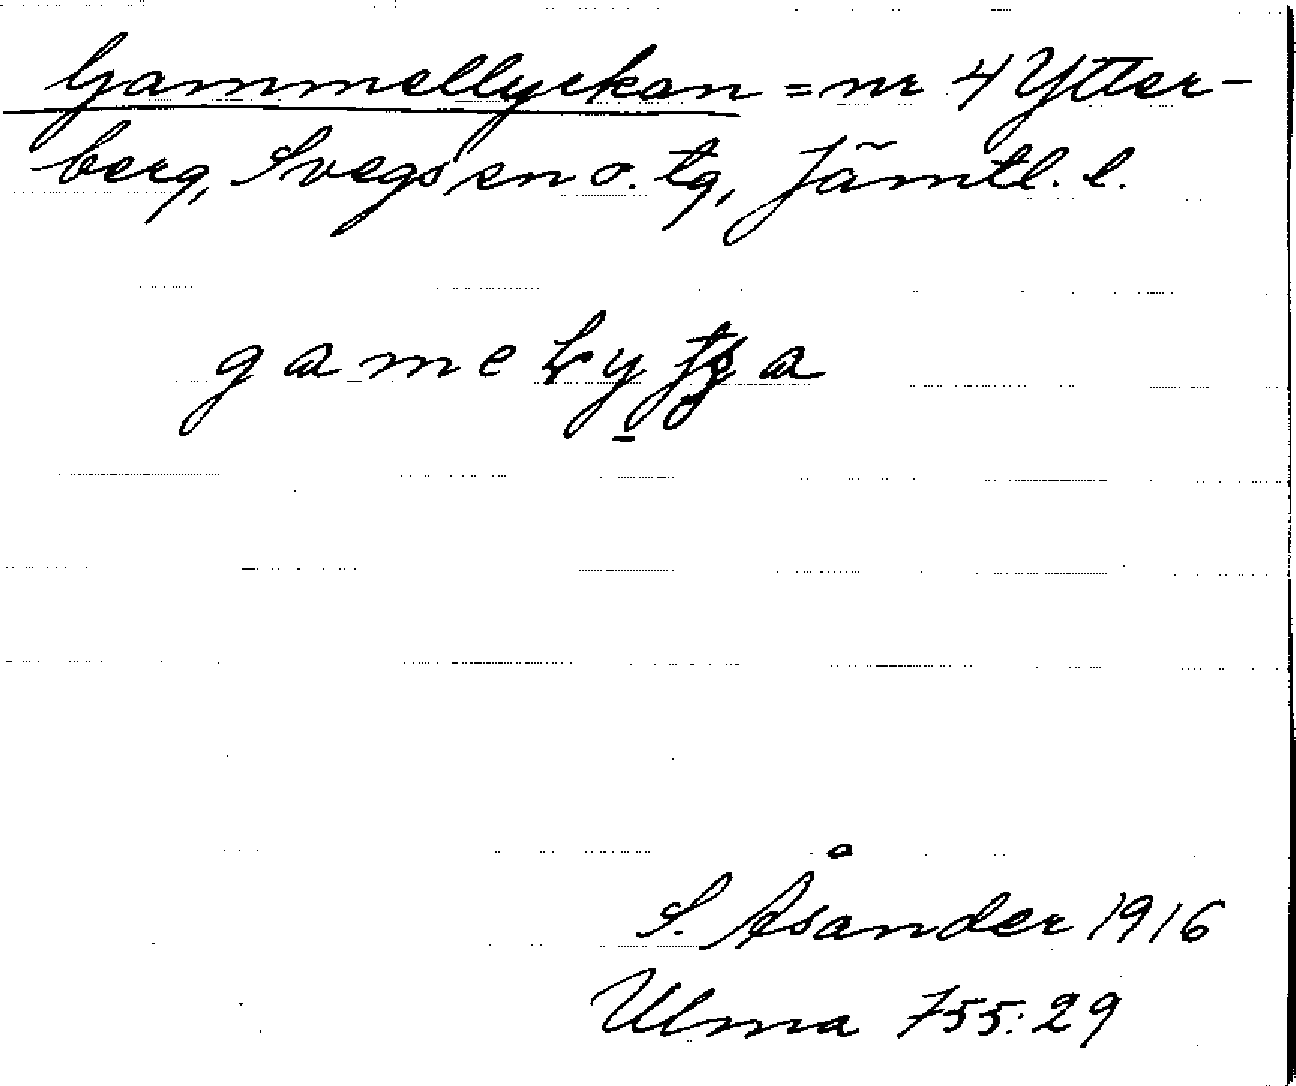 Gammellyckan = nr 4 Ytter-
berg, Svegs sn o. tg, Jämtl. l.
S. Åsander 1916
Ulma 755:29